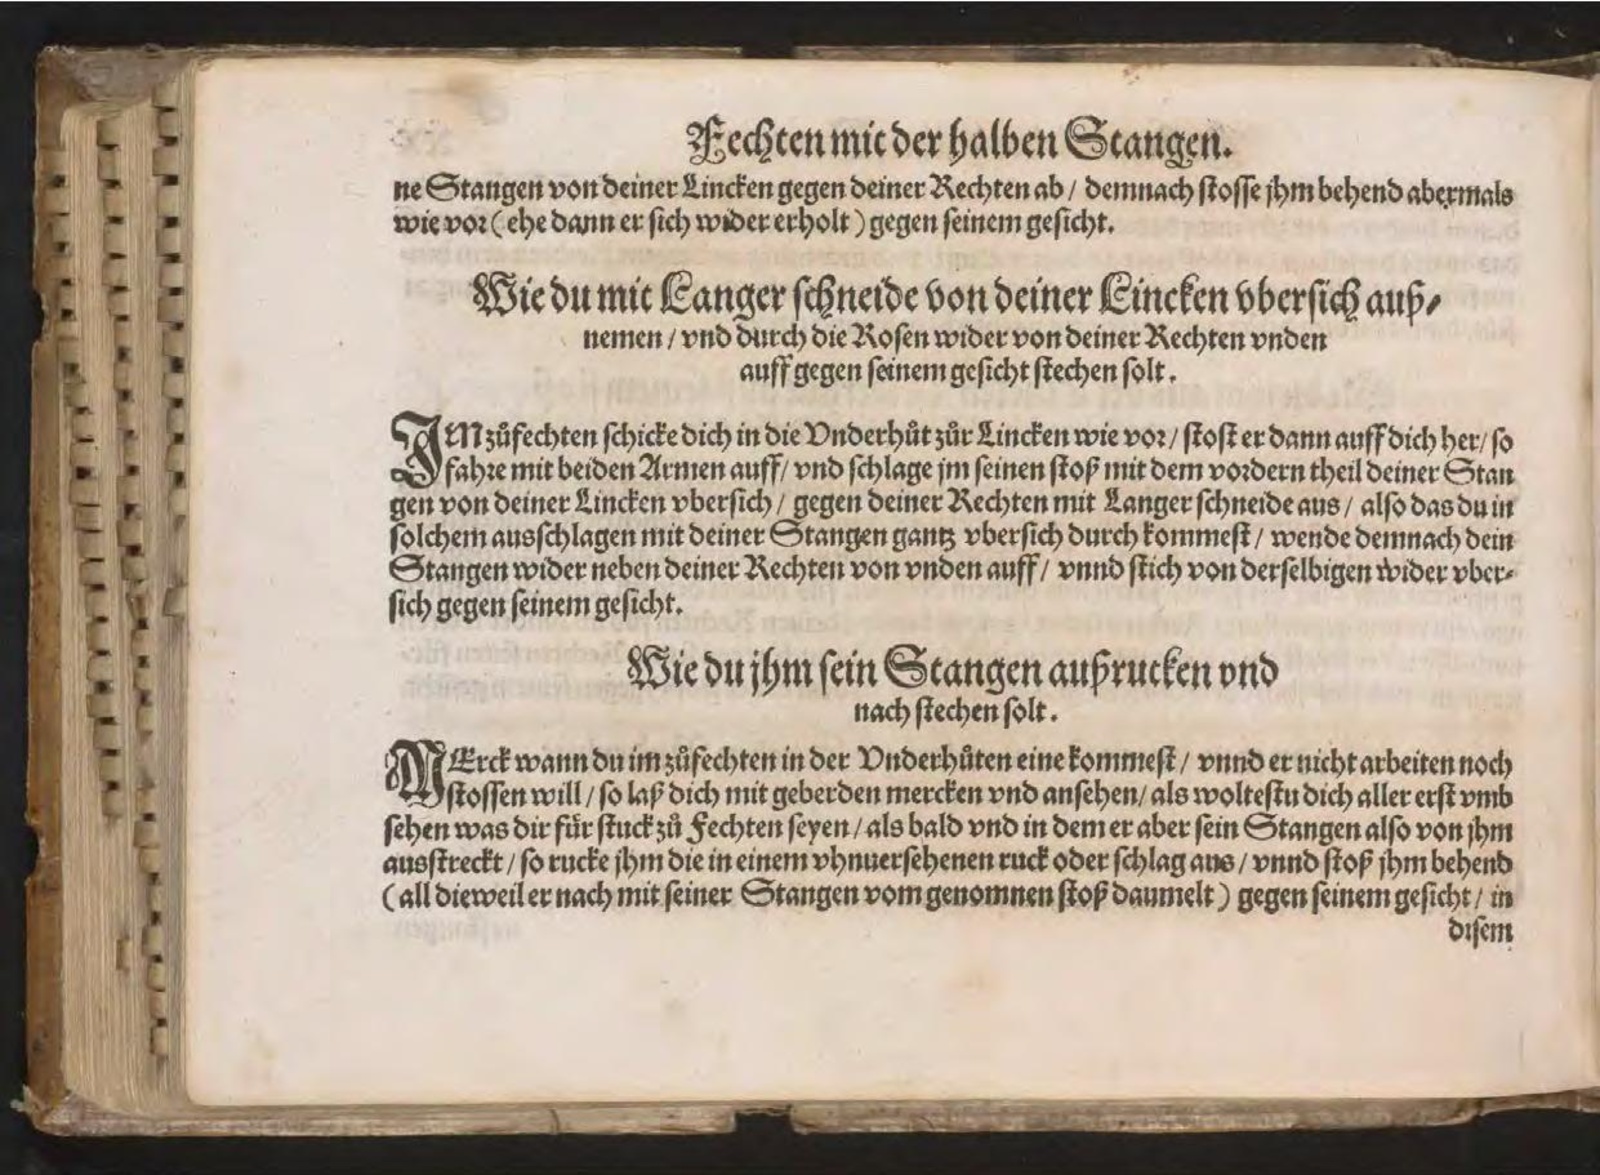 Fechten mit der halben Stangen.
ne Stangen von deiner Lincken gegen deiner Rechten ab / demnach stosse jhm behend abermals
wie vor (ehe dann er sich wider erholt) gegen seinem gesicht.
Wie du mit Langer schneide von deiner Lincken vbersich auß⸗
nemen / vnd durch die Rosen wider von deiner Rechten vnden
auff gegen seinem gesicht stechen solt.
IM zůfechten schicke dich in die Vnderhůt zůr Lincken wie vor / stost er dann auff dich her / so
fahre mit beiden Armen auff / vnd schlage jm seinen stoß mit dem vordern theil deiner Stan
gen von deiner Lincken vbersich / gegen deiner Rechten mit Langer schneide aus / also das du in
solchem ausschlagen mit deiner Stangen gantz vbersich durch kommest / wende demnach dein
Stangen wider neben deiner Rechten von vnden auff / vnnd stich von derselbigen wider vber⸗
sich gegen seinem gesicht.
Wie du jhm sein Stangen außrucken vnd
nach stechen solt.
MErck wann du im zůfechten in der Vnderhůten eine kommest / vnnd er nicht arbeiten noch
stossen will / so laß dich mit geberden mercken vnd ansehen / als woltestu dich aller erst vmb
sehen was dir für stuck zů Fechten seyen / als bald vnd in dem er aber sein Stangen also von jhm
ausstreckt / so rucke jhm die in einem vhnuersehenen ruck oder schlag aus / vnnd stoß jhm behend
(all dieweil er nach mit seiner Stangen vom genomnen stoß daumelt) gegen seinem gesicht / in
disem